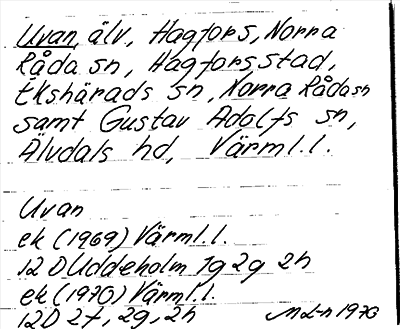 Uvan, älv, Hagfors, Norra
Råda sn, Hagfors stad,
Ekshärads sn, Norra Råda sn
samt Gustav Adolfs sn,
Älvdals hd, Värml.l.
Uvan
ek (1969) Värml.l.
12 D Uddeholm 1g 2g 2h
ek (1970) Värml.l.
12D 2f, 2g, 2h
1970